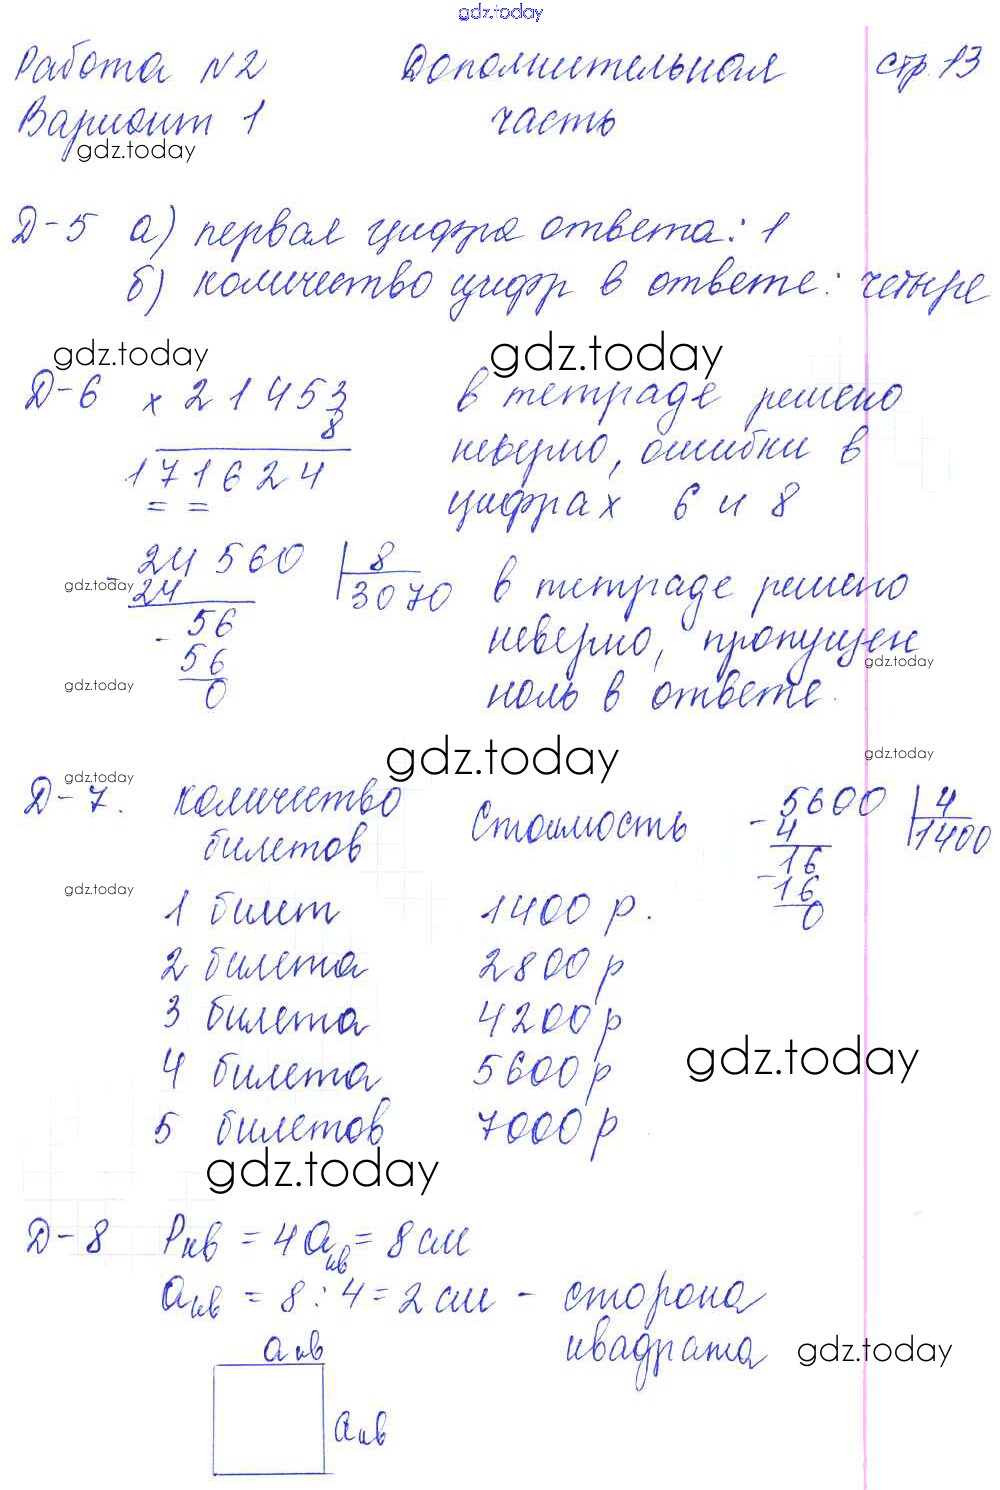 gdz.today
Работа №2 Дополнительная стр. 13
Вариант 1 часть
gdz.today
Д-5 а) первая цифра ответа: 1
б) количество цифр в ответе: четыре
gdz.today gdz.today
Д-6 × 21453 в тетраде решено
8 неверно, ошибки в
171624 цифрах 6 и 8
= =
- 24560 8
gdz.today 24 3070 в тетраде решено
- 56 неверно, пропущен
gdz.today
56
gdz.today 0 ноль в ответе.
gdz.today gdz.today
gdz.today
Д-7. количество Стоимость - 5600 4
билетов 4 1400
- 16
gdz.today 16
1 билет 1400 р. 0
2 билета 2800 р
3 билета 4200 р
gdz.today
4 билета 5600 р
5 билетов 7000 р
gdz.today
Д-8 Pкв = 4aкв = 8 см
aкв = 8 : 4 = 2 см - сторона
квадрата gdz.today
aкв
aкв